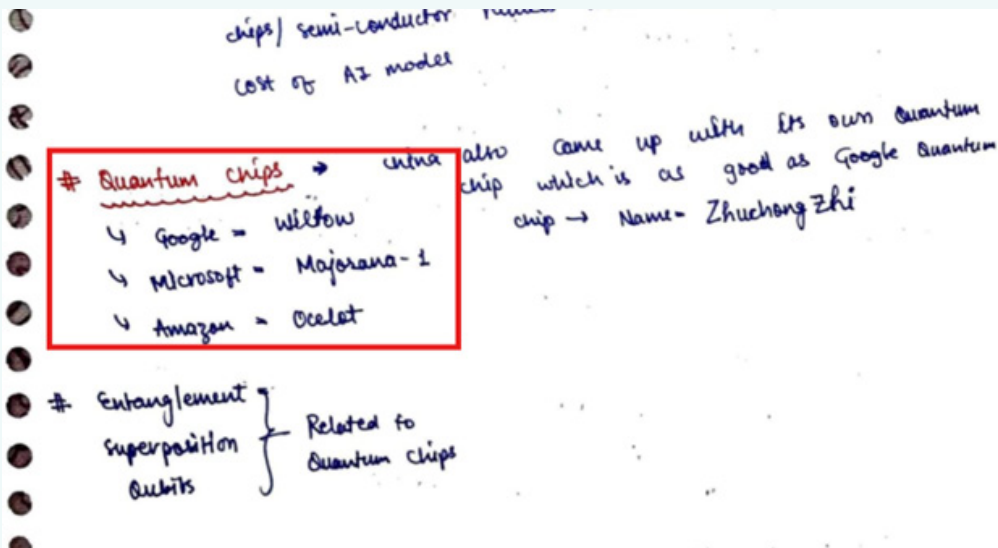 chips/ semi-conductor
cost of AI model
# Quantum chips → china also came up with its own Quantum
chip which is as good as Google Quantum
chip → Name- Zhuchong Zhi
↳ Google = Willow
↳ Microsoft = Majorana-1
↳ Amazon = Ocelot
# Entanglement
Superposition
Qubits
Related to
Quantum Chips